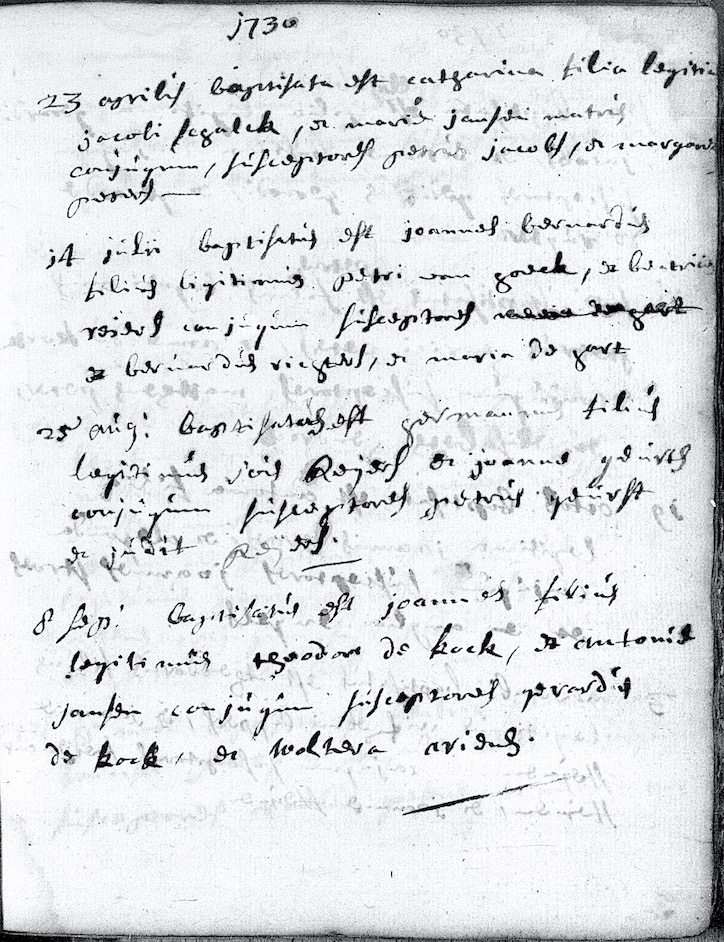 1730
23 aprilis baptisata est catharina filia legitima
jacobi schalck, et mariæ jansen matris
conjugum, susceptores petrus jacobs, et margareta
peters
14 julii baptisatus est joannes bernardus
filius legitimus petri van goeck, et beatricis
reiers conjugum susceptores
et bernardus richters, et maria de gart
25 aug: baptisatus est hermannus filius
legitimus jois Reijers et joannæ geurts
conjugum susceptores petrus geurst
et judit Reijers.
8 sep: baptisatus est joannes filius
legitimus theodori de kock, et antoniæ
jansen conjugum susceptores gerardus
de kock, et woltera ariens.